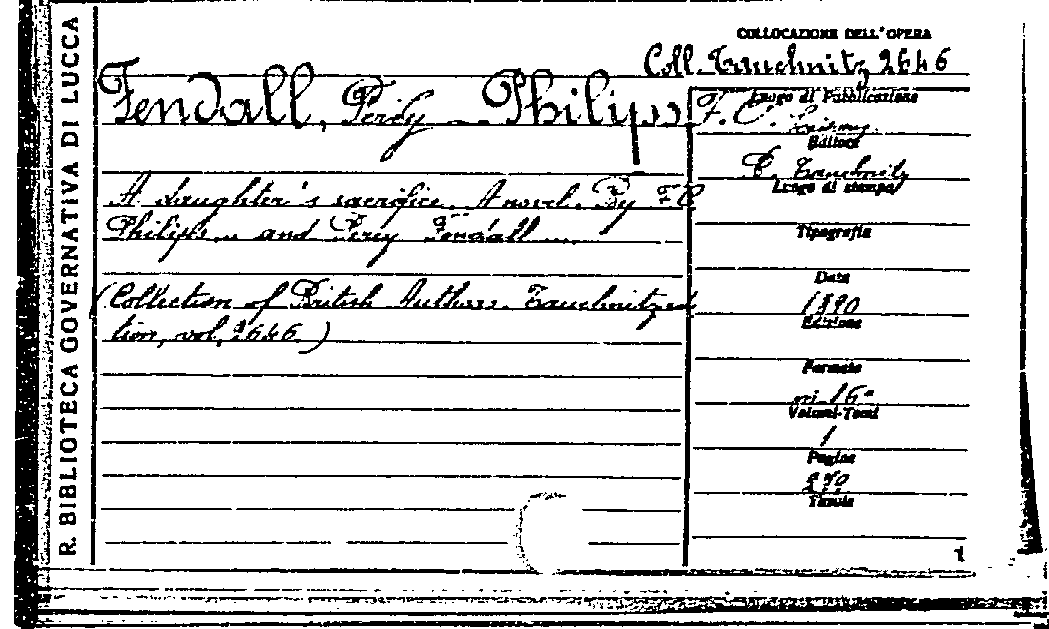 R. BIBLIOTECA GOVERNATIVA DI LUCCA
COLLOCAZIONE DELL'OPERA
Coll. Tauchnitz 2646
Fendall, Percy – Philips F. C.
Luogo di Pubblicazione
Editore
A daughter's sacrifice. A novel. By F C
C. Tauchnitz
Luogo di stampa
Philips... and Percy Fendall ....
Tipografia
Data
(Collection of British Authors. Tauchnitz edi
1890
Edizione
tion, vol. 2646.)
Formato
in 16°
Volumi-Tomi
1
Pagine
Tavole
1